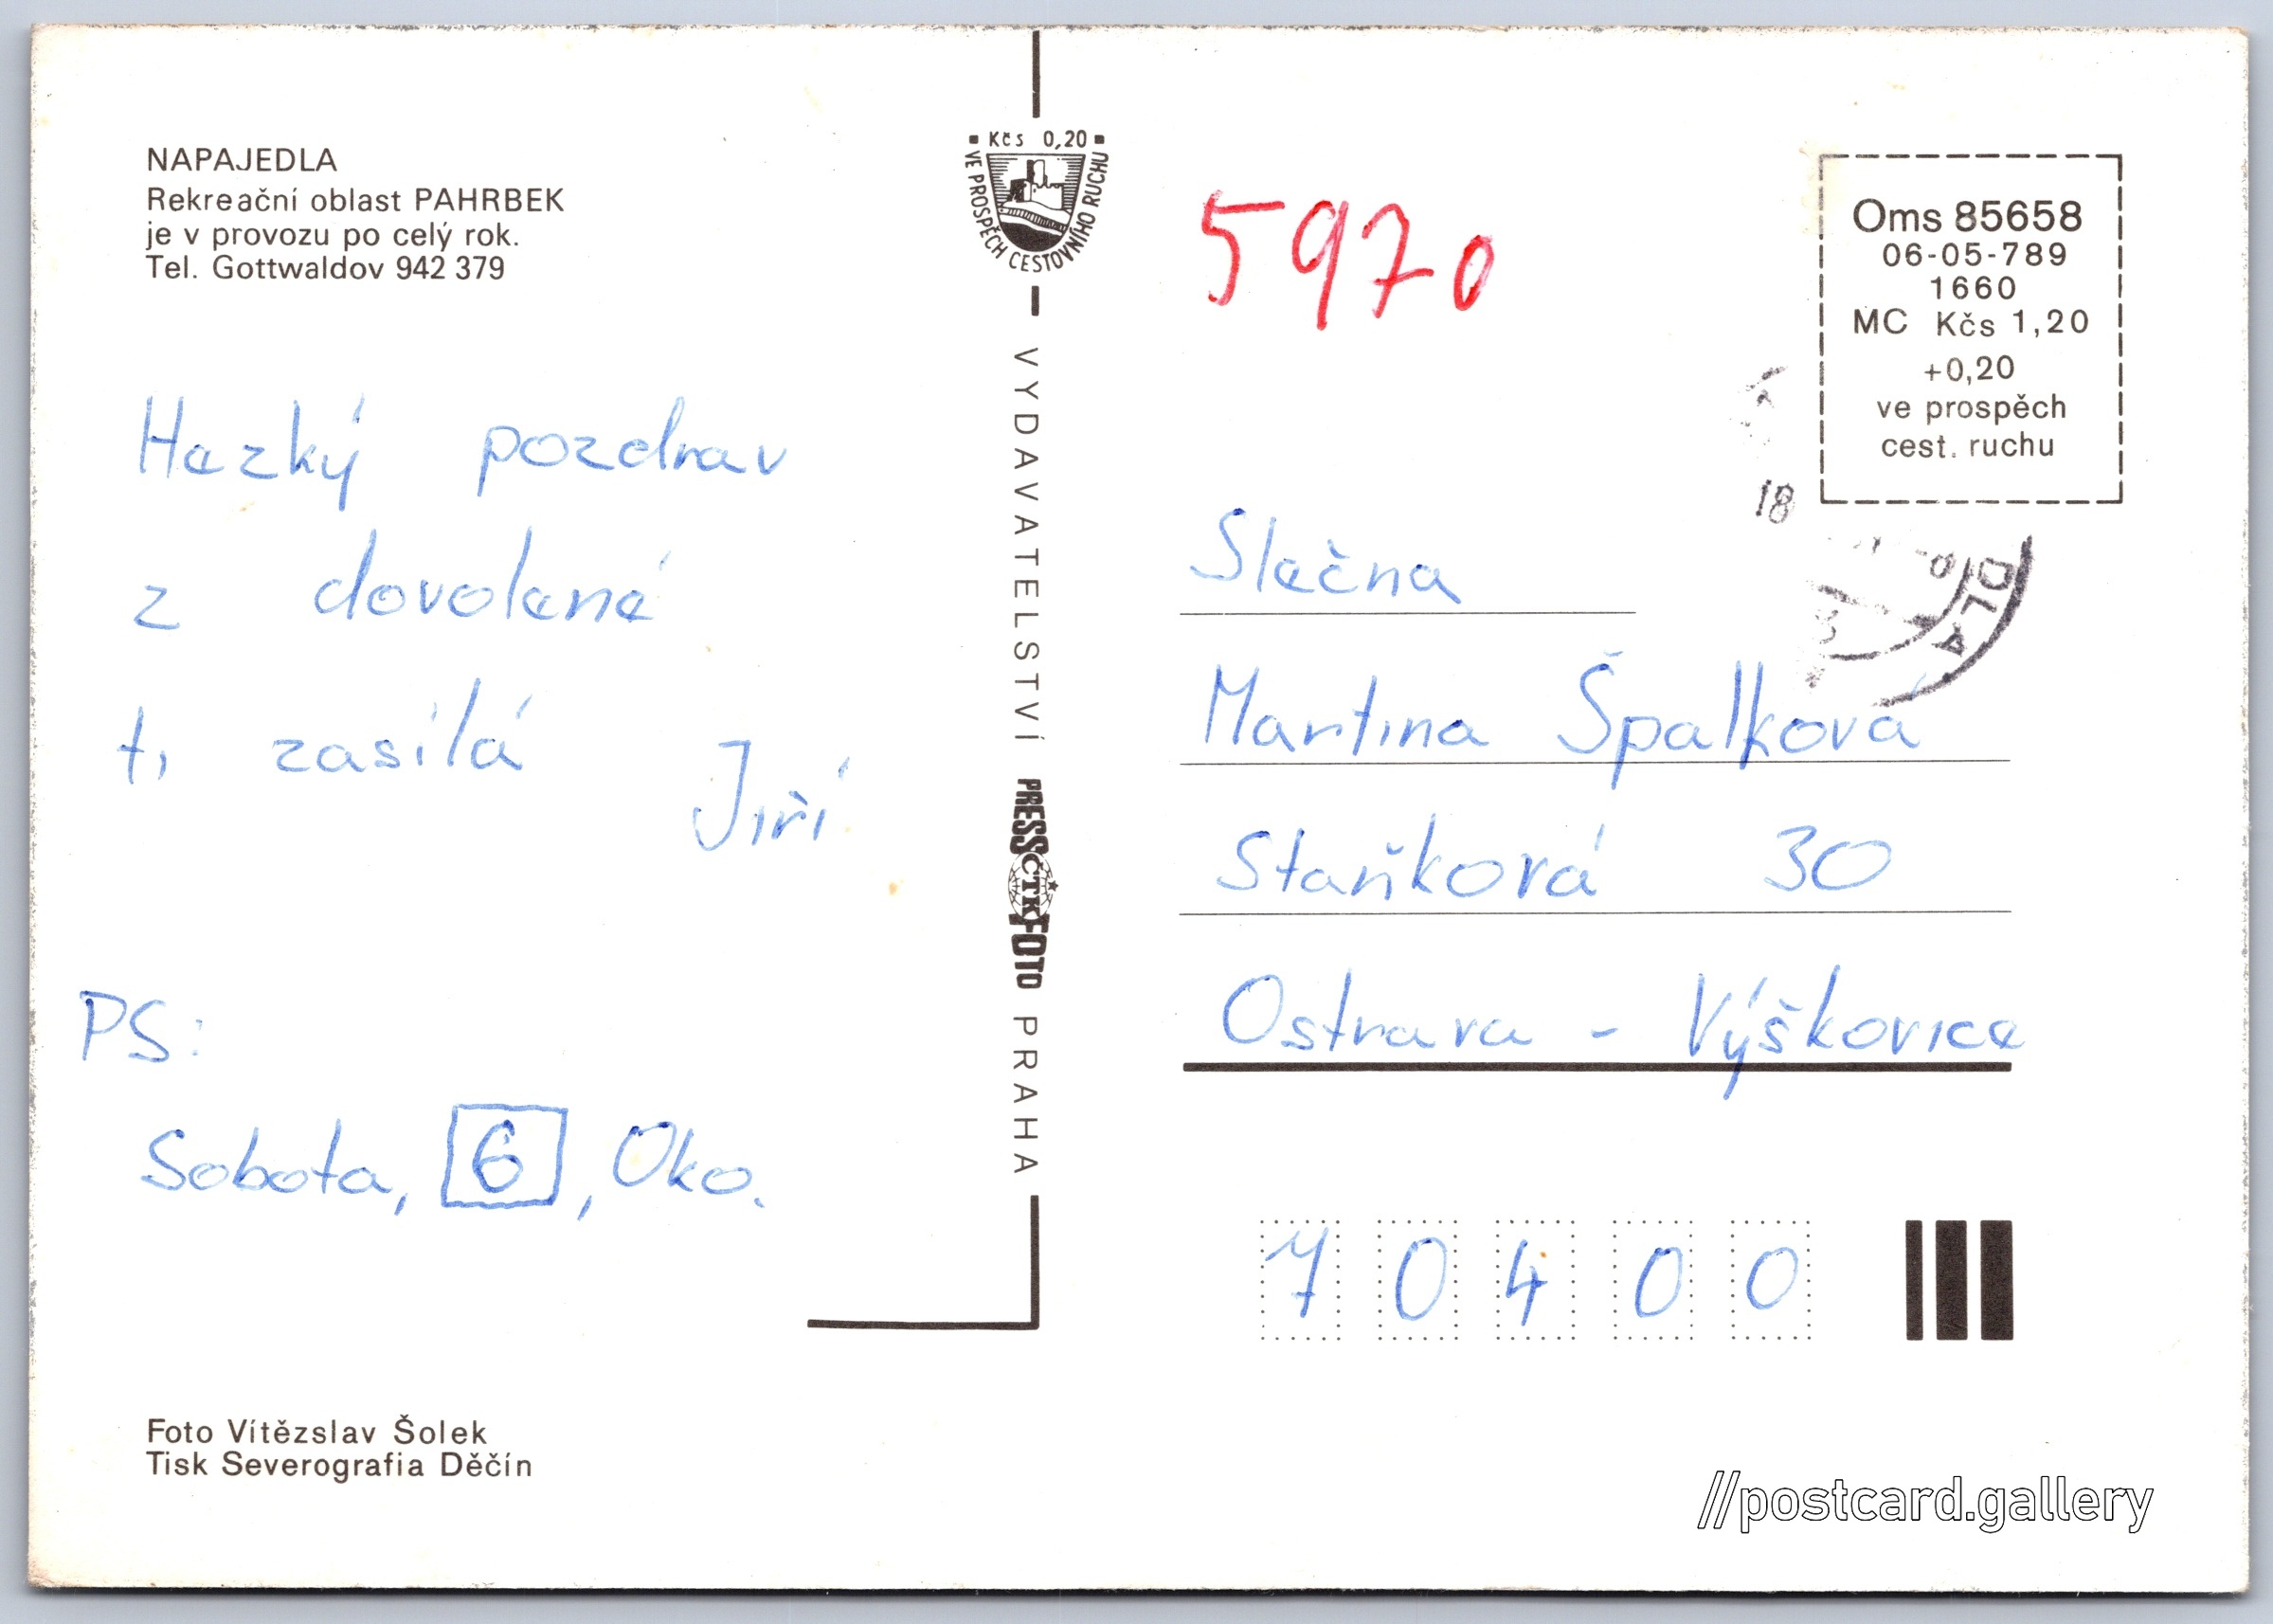 NAPAJEDLA
Rekreační oblast PAHRBEK
je v provozu po celý rok.
Tel. Gottwaldov 942 379
Hezký pozdrav
z dovolené
ti zasílá
Jiří
PS:
Sobota, 6, Oko.
Foto Vítězslav Šolek
Tisk Severografia Děčín
Kčs 0,20
VE PROSPĚCH CESTOVNÍHO RUCHU
VYDAVATELSTVÍ PRESSFOTO PRAHA
ČTK
5970
Oms 85658
06-05-789
1660
MC Kčs 1,20
+0,20
ve prospěch
cest. ruchu
18
Slečna
Martina Špalková
Staňková 30
Ostrava - Výškovice
70400
//postcard.gallery